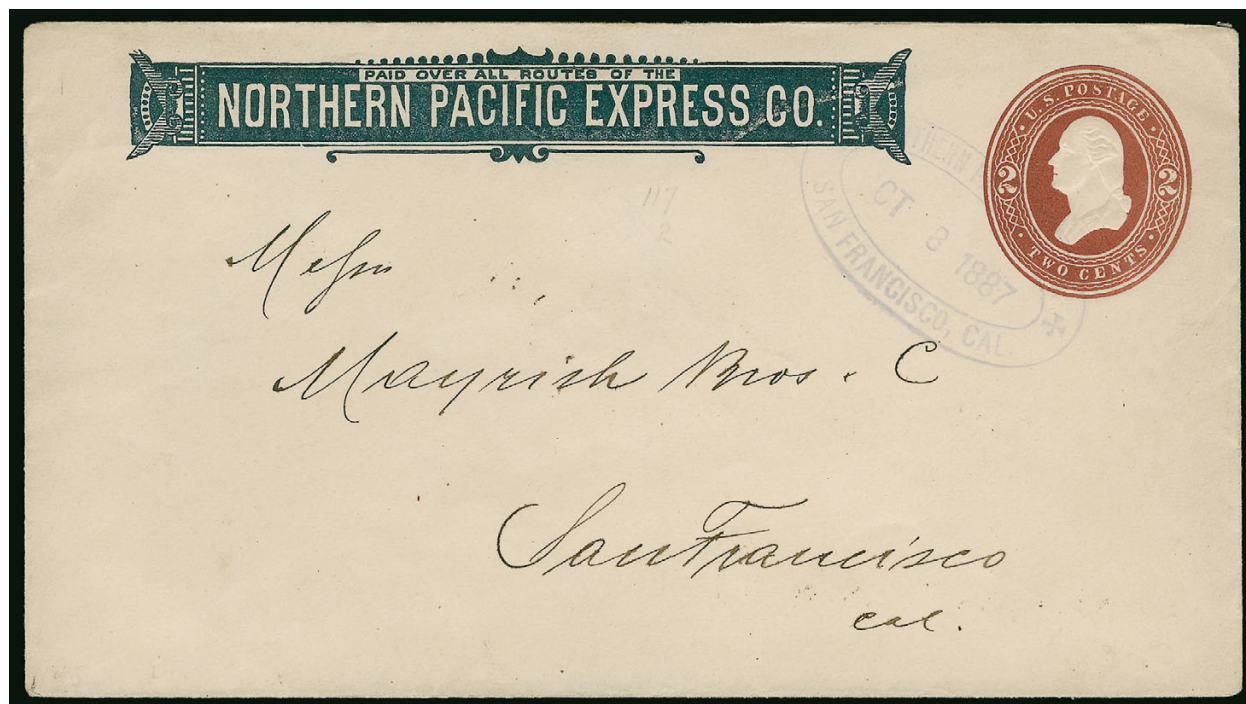 PAID OVER ALL ROUTES OF THE
NORTHERN PACIFIC EXPRESS CO.
U.S. POSTAGE
2 2
TWO CENTS
CT 8 1887
SAN FRANCISCO, CAL.
117
2
Messrs
Mayrish Bros. C
San Francisco
Cal.